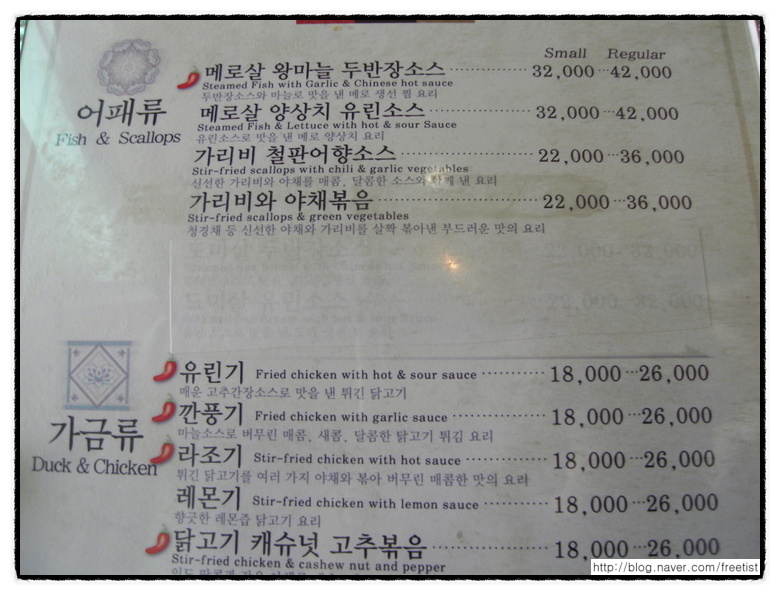 Small Regular
메로살 왕마늘 두반장소스 32,000 42,000
Steamed Fish with Garlic & Chinese hot sauce
두반장소스와 마늘로 맛을 낸 메로 생선 찜 요리
어패류
Fish & Scallops
메로살 양상치 유린소스 32,000 42,000
Steamed Fish & Lettuce with hot & sour Sauce
유린소스로 맛을 낸 메로 양상치 요리
가리비 철판어향소스 22,000 36,000
Stir-fried scallops with chili & garlic vegetables
신선한 가리비와 야채를 매콤, 달콤한 소스와 함께 낸 요리
가리비와 야채볶음 22,000 36,000
Stir-fried scallops & green vegetables
청경채 등 신선한 야채와 가리비를 살짝 볶아낸 부드러운 맛의 요리
도미살 유린소스
가금류
Duck & Chicken
유린기 Fried chicken with hot & sour sauce 18,000 26,000
매운 고추간장소스로 맛을 낸 튀긴 닭고기
깐풍기 Fried chicken with garlic sauce 18,000 26,000
마늘소스로 버무린 매콤, 새콤, 달콤한 닭고기 튀김 요리
라조기 Stir-fried chicken with hot sauce 18,000 26,000
튀긴 닭고기를 여러 가지 야채와 볶아 버무린 매콤한 맛의 요리
레몬기 Stir-fried chicken with lemon sauce 18,000 26,000
향긋한 레몬즙 닭고기 요리
닭고기 캐슈넛 고추볶음 18,000 26,000
Stir-fried chicken & cashew nut and pepper
http://blog.naver.com/freetist